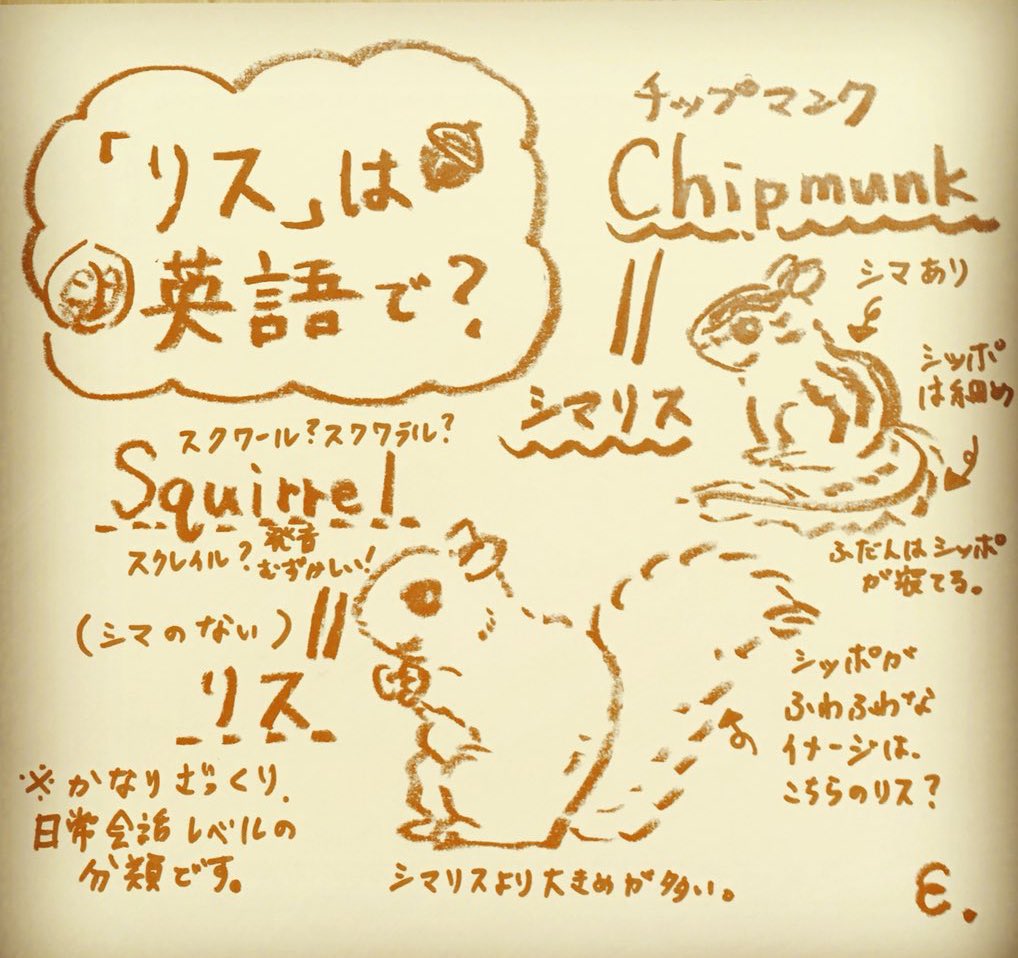 「リス」は
英語で?
チップマンク
Chipmunk
シマリス
シマあり
シッポ
は細め
ふだんはシッポ
が寝てる。
スクワール?スクワラル?
Squirrel
スクレイル?発音
むずかしい!
(シマのない)
リス
※かなりざっくり、
日常会話レベルの
分類です。
シッポが
ふわふわな
イメージは、
こちらのリス?
シマリスより大きめが多い。
ε.